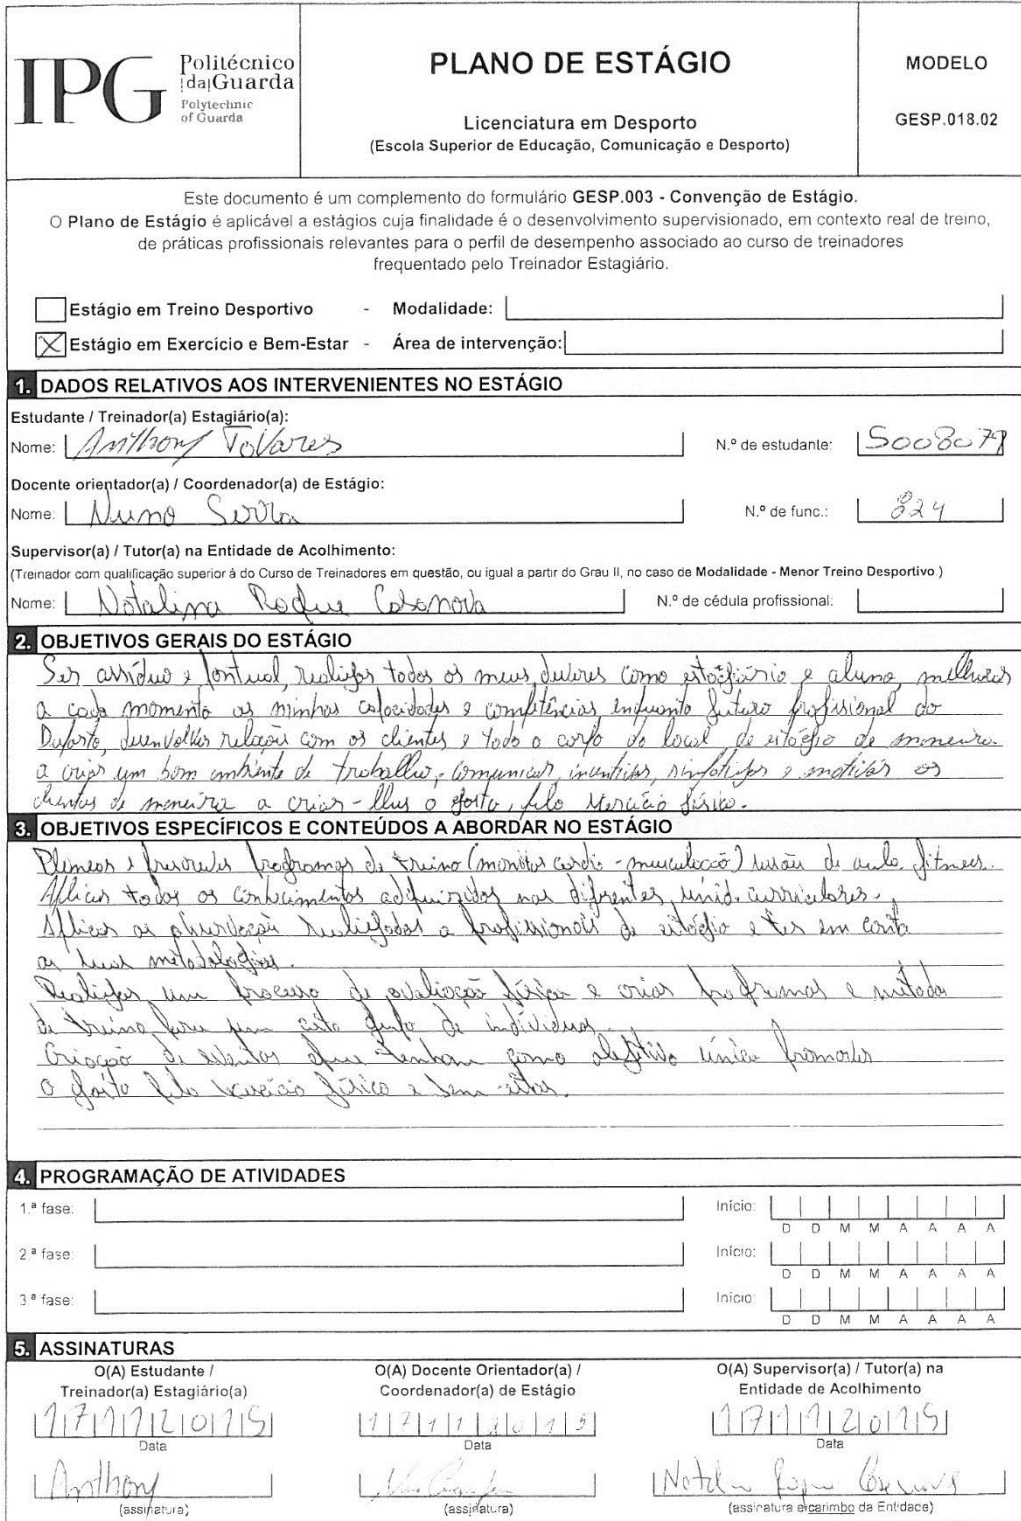 IPG Politécnico
|da|Guarda
Polytechnic
of Guarda
PLANO DE ESTÁGIO
Licenciatura em Desporto
(Escola Superior de Educação, Comunicação e Desporto)
MODELO
GESP.018.02
Este documento é um complemento do formulário GESP.003 - Convenção de Estágio.
O Plano de Estágio é aplicável a estágios cuja finalidade é o desenvolvimento supervisionado, em contexto real de treino,
de práticas profissionais relevantes para o perfil de desempenho associado ao curso de treinadores
frequentado pelo Treinador Estagiário.
Estágio em Treino Desportivo - Modalidade:
X Estágio em Exercício e Bem-Estar - Área de intervenção:
1. DADOS RELATIVOS AOS INTERVENIENTES NO ESTÁGIO
Estudante / Treinador(a) Estagiário(a):
Nome: Anthony Tavares N.º de estudante: 5008078
Docente orientador(a) / Coordenador(a) de Estágio:
Nome: Nuno Serra N.º de func.: 224
Supervisor(a) / Tutor(a) na Entidade de Acolhimento:
(Treinador com qualificação superior à do Curso de Treinadores em questão, ou igual a partir do Grau II, no caso de Modalidade - Menor Treino Desportivo.)
Nome: Natalina Roque Casanova N.º de cédula profissional:
2. OBJETIVOS GERAIS DO ESTÁGIO
Ser assíduo e pontual, realizar todos os meus deveres como estagiário e aluno, melhorar
a cada momento as minhas capacidades e competências enquanto futuro profissional do
Desporto, desenvolver relação com os clientes e todo o corpo do local de estágio de maneira
a criar um bom ambiente de trabalho, comunicar, incentivar, simpatizar e motivar os
clientes de maneira a criar-lhes o gosto pelo exercício físico.
3. OBJETIVOS ESPECÍFICOS E CONTEÚDOS A ABORDAR NO ESTÁGIO
Planear e prescrever programas de treino (monitor cardio-musculação) de aula fitness.
Aplicar todos os conhecimentos adquiridos nas diferentes unid. curriculares.
Aplicar as observação realizadas a profissionais de estágio e ter em conta
as suas metodologias.
Realizar um processo de avaliação física e criar programas e métodos
de treino para um certo grupo de individuos.
Criação de eventos que tenham como objetivo único promover
o gosto pelo exercício físico e bem-estar.
4. PROGRAMAÇÃO DE ATIVIDADES
1.ª fase: Início:
D D M M A A A A
2.ª fase: Início:
D D M M A A A A
3.ª fase: Início:
D D M M A A A A
5. ASSINATURAS
O(A) Estudante /
Treinador(a) Estagiário(a)
17112015
Data
Anthony
(assinatura)
O(A) Docente Orientador(a) /
Coordenador(a) de Estágio
17112015
Data
(assinatura)
O(A) Supervisor(a) / Tutor(a) na
Entidade de Acolhimento
17112015
Data
(assinatura e carimbo da Entidade)